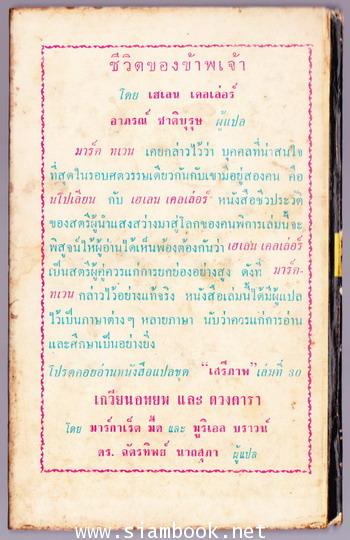 ชีวิตของข้าพเจ้า
โดย เฮเลน เคลเล่อร์
อาภรณ์ ชาติบุรุษ ผู้แปล
มาร์ค ทเวน เคยกล่าวไว้ว่า บุคคลที่น่าสนใจ
ที่สุดในรอบศตวรรษเดียวกันกับเขามีอยู่สองคน คือ
นโปเลียน กับ เฮเลน เคลเล่อร์ หนังสือชีวประวัติ
ของสตรีผู้นำแสงสว่างมาสู่โลกของคนพิการเล่มนี้จะ
พิสูจน์ให้ผู้อ่านได้เห็นพ้องต้องกันว่า เฮเลน เคลเล่อร์
เป็นสตรีผู้คู่ควรแก่การยกย่องอย่างสูง ดังที่ มาร์ค-
ทเวน กล่าวไว้อย่างแท้จริง หนังสือเล่มนี้ได้มีผู้แปล
ไว้เป็นภาษาต่างๆ หลายภาษา นับว่าควรแก่การอ่าน
และศึกษาเป็นอย่างยิ่ง
โปรดคอยอ่านหนังสือแปลชุด “เสรีภาพ” เล่มที่ 30
เกวียนอพยพ และ ดวงดารา
โดย มาร์กาเร็ต มี้ด และ มูริเอล บราวน์
ดร. ฉัตรทิพย์ นาถสุภา ผู้แปล
www.siambook.net